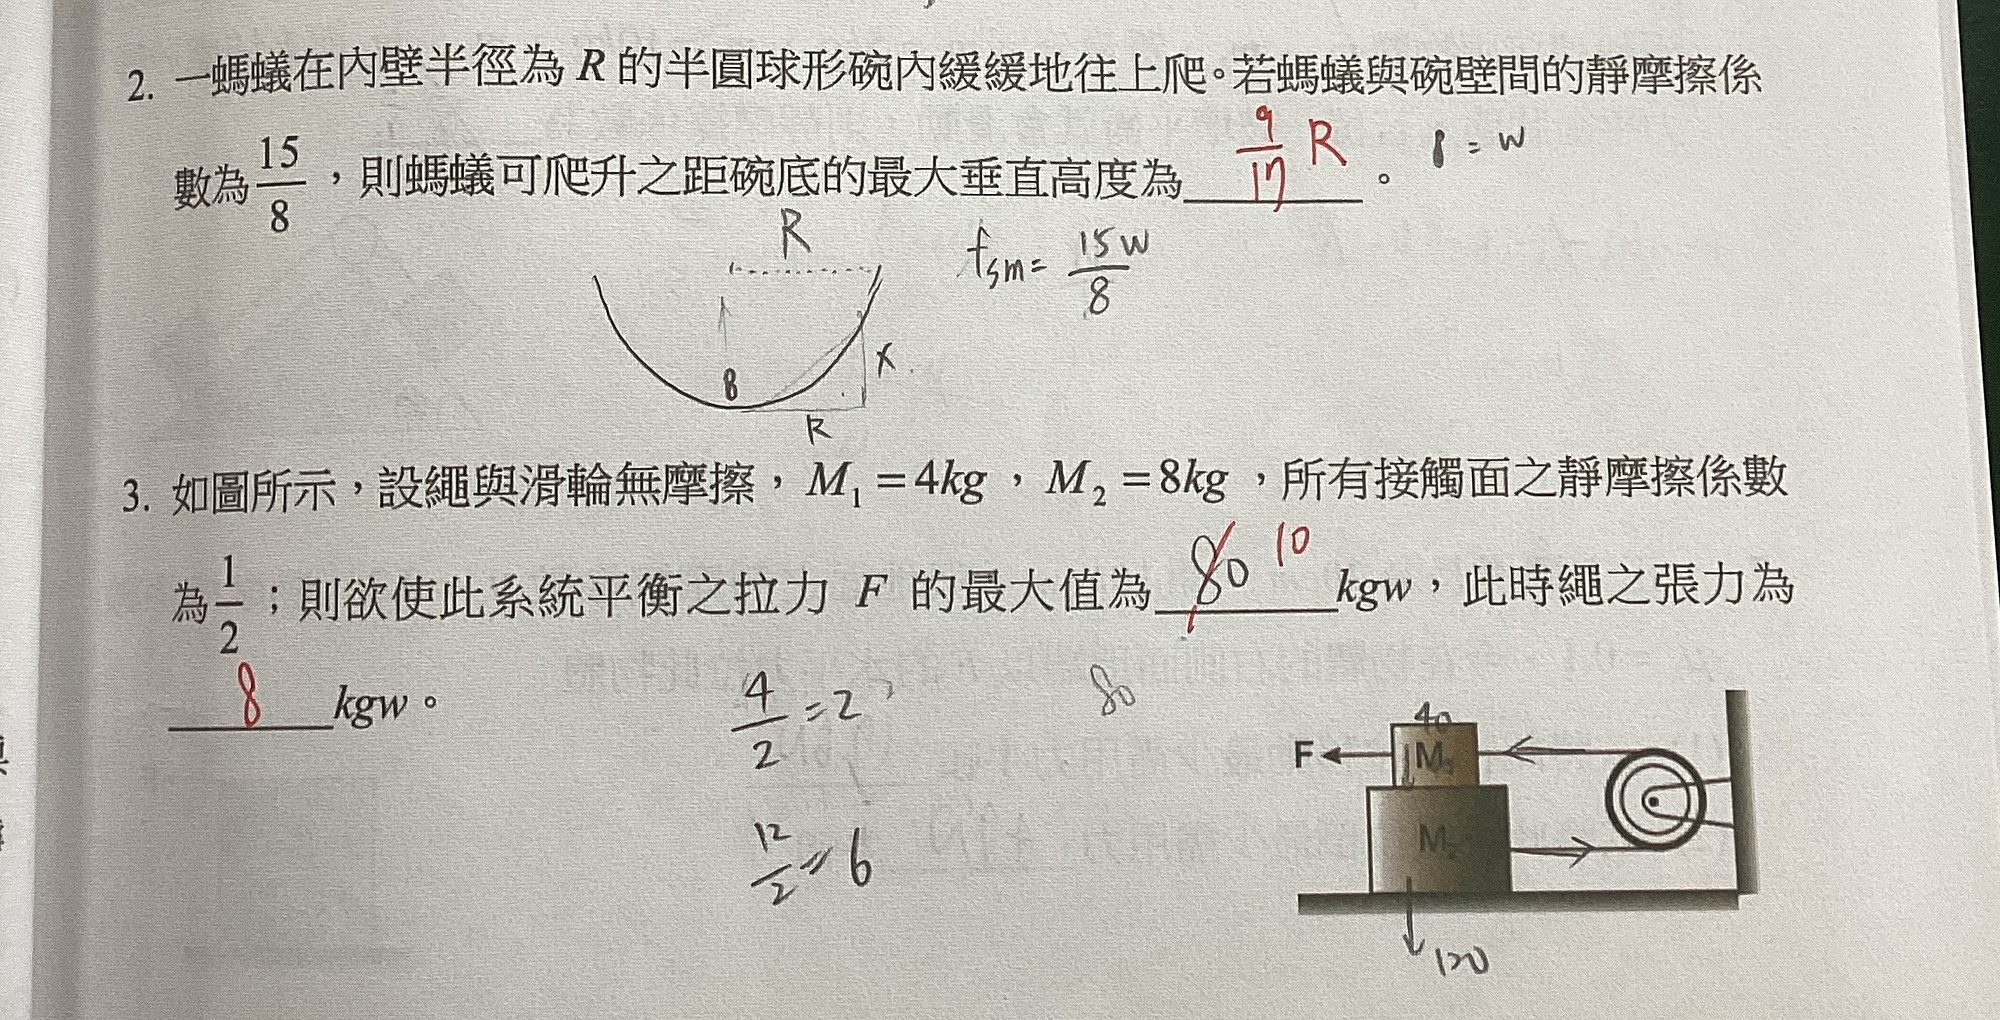 2. 一螞蟻在內壁半徑為 R 的半圓球形碗內緩緩地往上爬。若螞蟻與碗壁間的靜摩擦係
數為 15/8，則螞蟻可爬升之距碗底的最大垂直高度為 9/17 R 。
R
fsm = 15W/8
8
X
R
3. 如圖所示，設繩與滑輪無摩擦，M₁ = 4kg，M₂ = 8kg，所有接觸面之靜摩擦係數
為 1/2；則欲使此系統平衡之拉力 F 的最大值為 80 10 kgw，此時繩之張力為
8 kgw。
4/2 = 2
80
12/2 = 6
40
F
M₁
M₂
120